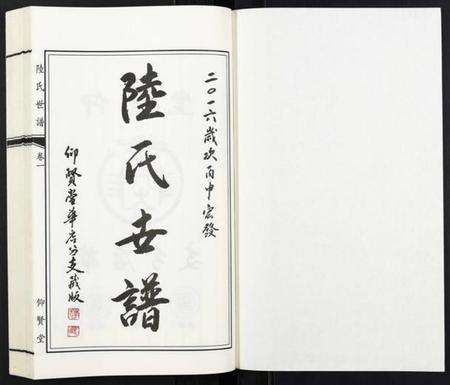 二〇一六歲次丙申宏發
陸氏世譜
仰賢堂華店分支藏版
陸氏世譜
卷一
仰賢堂